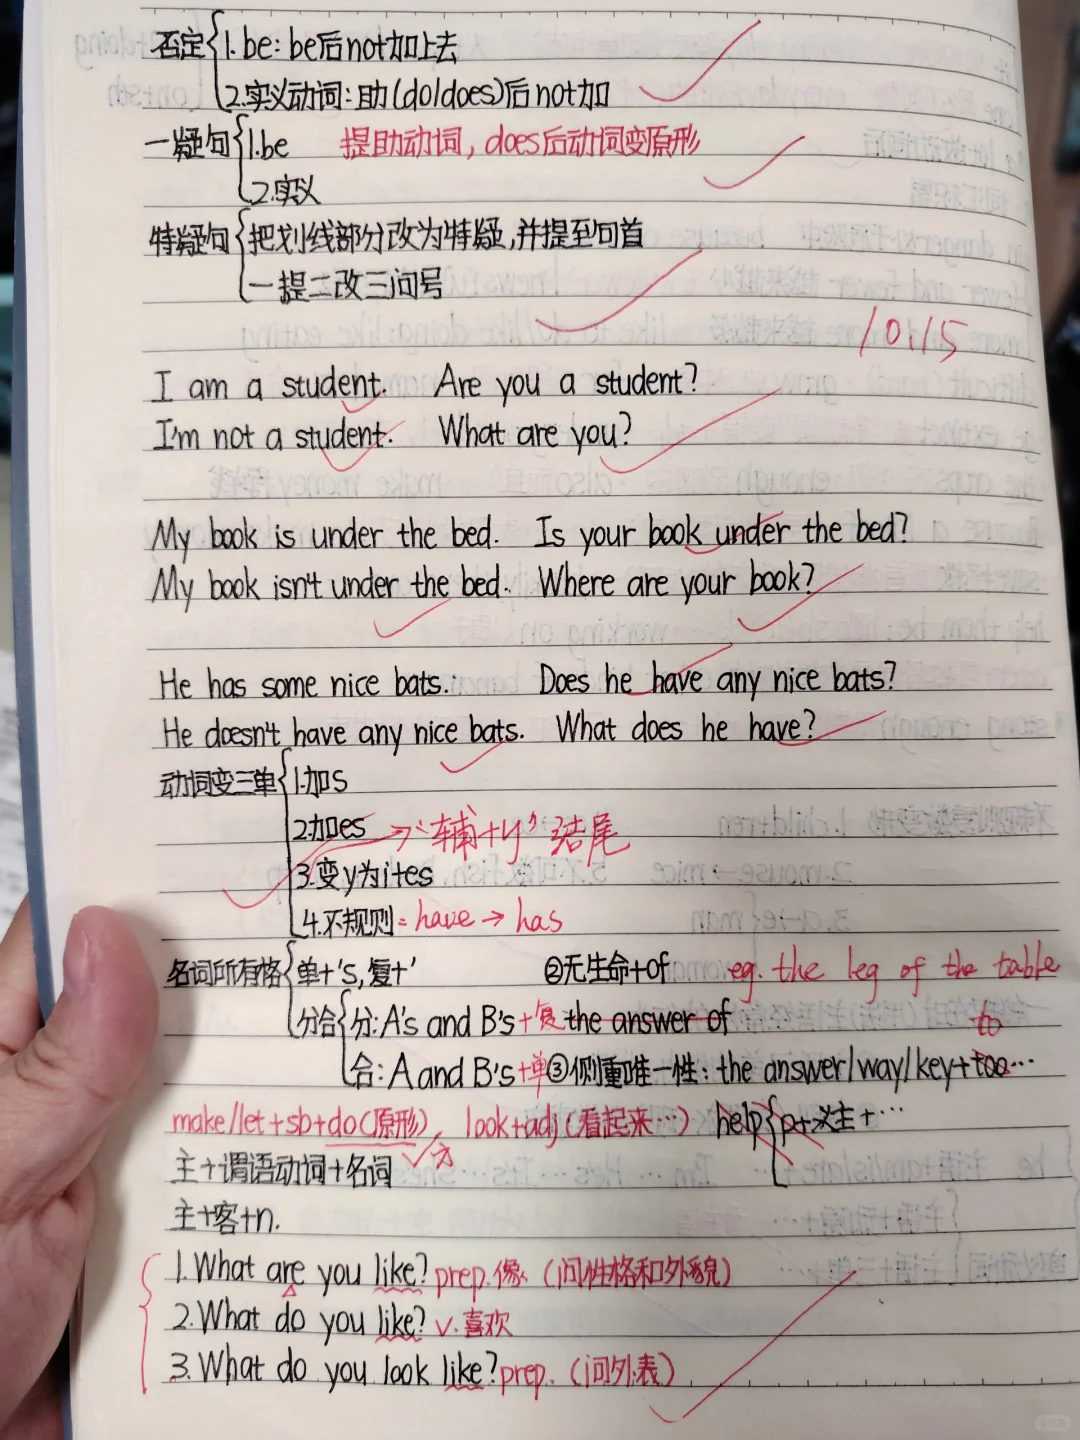 否定{1.be:be后not加上去
2.实义动词:助(do/does)后not加
一疑句{1.be 提助动词, does后动词变原形
2.实义
特疑句{把划线部分改为特疑,并提至句首
一提二改三问号
10.15
I am a student. Are you a student?
I'm not a student. What are you?
My book is under the bed. Is your book under the bed?
My book isn't under the bed. Where are your book?
He has some nice bats. Does he have any nice bats?
He doesn't have any nice bats. What does he have?
动词变三单{1.加s
2.加es → "辅+y"结尾
3.变y为i+es
4.不规则:have→has
名词所有格{单+'s,复+' ②无生命+of eg. the leg of the table
分合{分:A's and B's+复 the answer of to
合:A and B's+单 ③侧重唯一性:the answer/way/key+too…
make/let+sb+do(原形), look+adj(看起来…) help{p+义主+…
主+谓语动词+名词
主+客+n.
1.What are you like? prep.像 (问性格和外貌)
2.What do you like? v.喜欢
3.What do you look like? prep. (问外表)